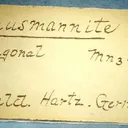 usmannite
agonal Mn3
eld. Hartz. Ger